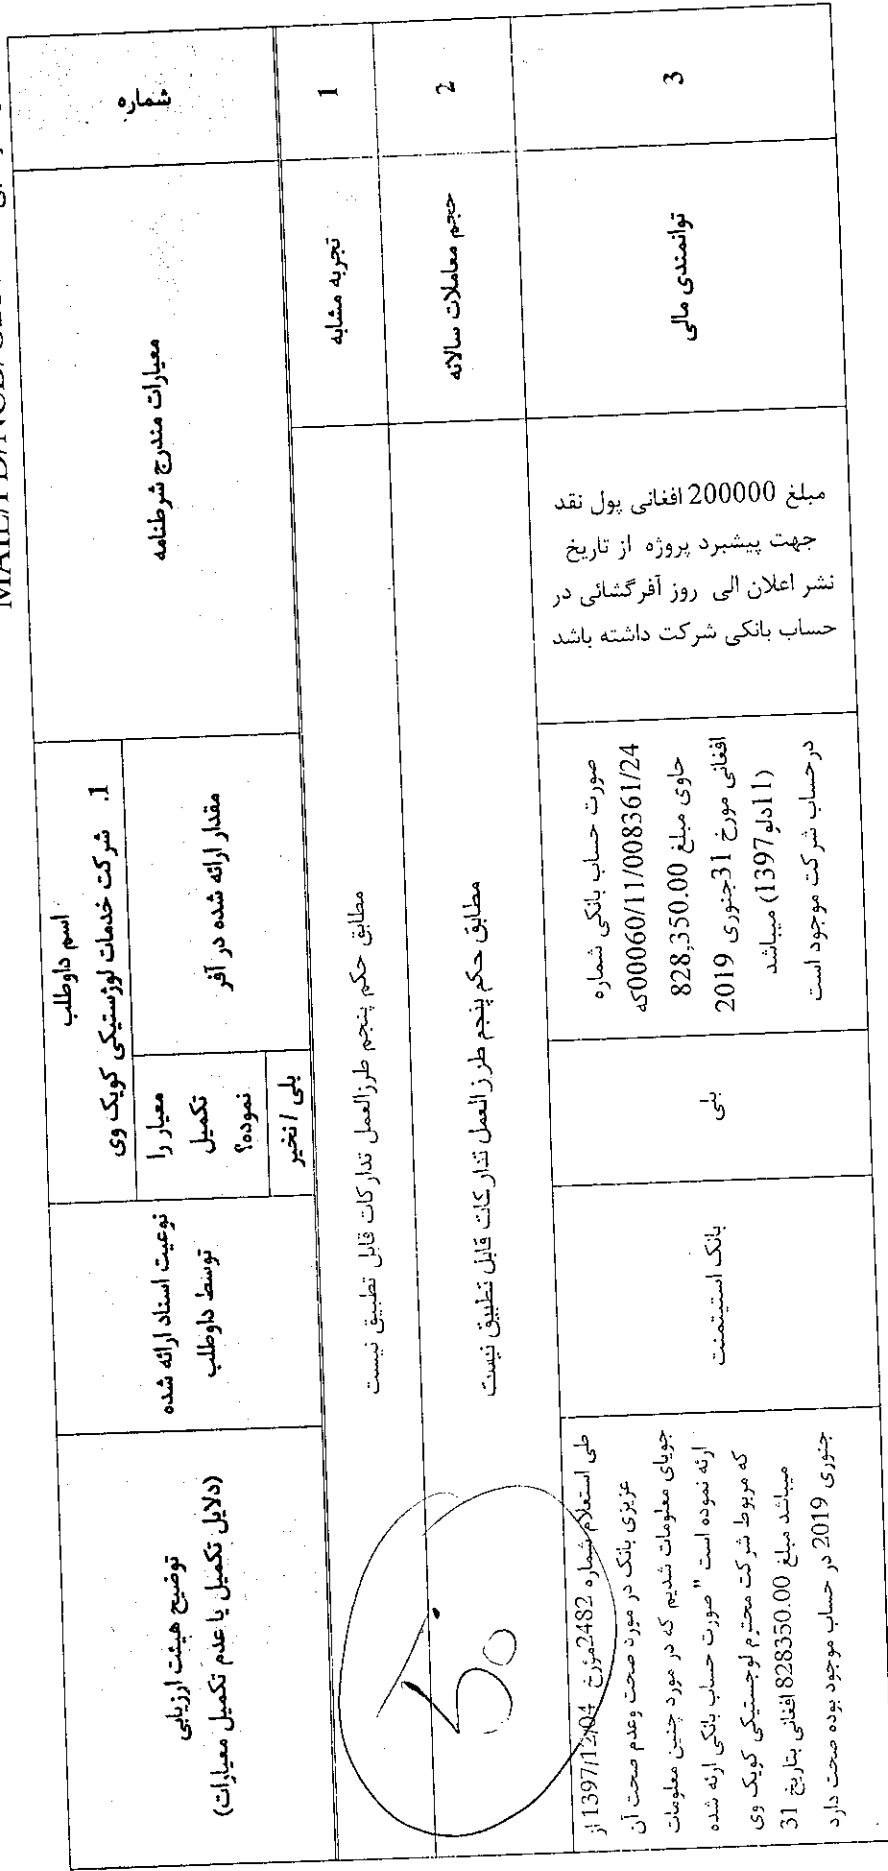 MAIL/PD/NCB/
شماره
معیارات مندرج شرطنامه
اسم داوطلب
1. شرکت خدمات لوژستیکی کویک وی
مقدار ارائه شده در آفر
معیار را
تکمیل
نموده؟
بلی / نخیر
نوعیت اسناد ارائه شده
توسط داوطلب
توضیح هیئت ارزیابی
(دلایل تکمیل یا عدم تکمیل معیارات)
1
تجربه مشابه
مطابق حکم پنجم طرزالعمل تدارکات قابل تطبیق نیست
2
حجم معاملات سالانه
مطابق حکم پنجم طرزالعمل تدارکات قابل تطبیق نیست
3
توانمندی مالی
مبلغ 200000 افغانی پول نقد
جهت پیشبرد پروژه از تاریخ
نشر اعلان الی روز آفرگشائی در
حساب بانکی شرکت داشته باشد
صورت حساب بانکی شماره
00060/11/008361/24که
حاوی مبلغ 828,350.00
افغانی مورخ 31جنوری 2019
(11دلو1397) میباشد
درحساب شرکت موجود است
بلی
بانک استیتمنت
طی استعلام شماره 2482مؤرخ 1397/12/04 از
عزیزی بانک در مورد صحت وعدم صحت آن
جویای معلومات شدیم که در مورد چنین معلومات
ارئه نموده است "صورت حساب بانکی ارئه شده
که مربوط شرکت محترم لوجستیکی کویک وی
میباشد مبلغ 828350.00 افغانی بتاریخ 31
جنوری 2019 در حساب موجود بوده صحت دارد